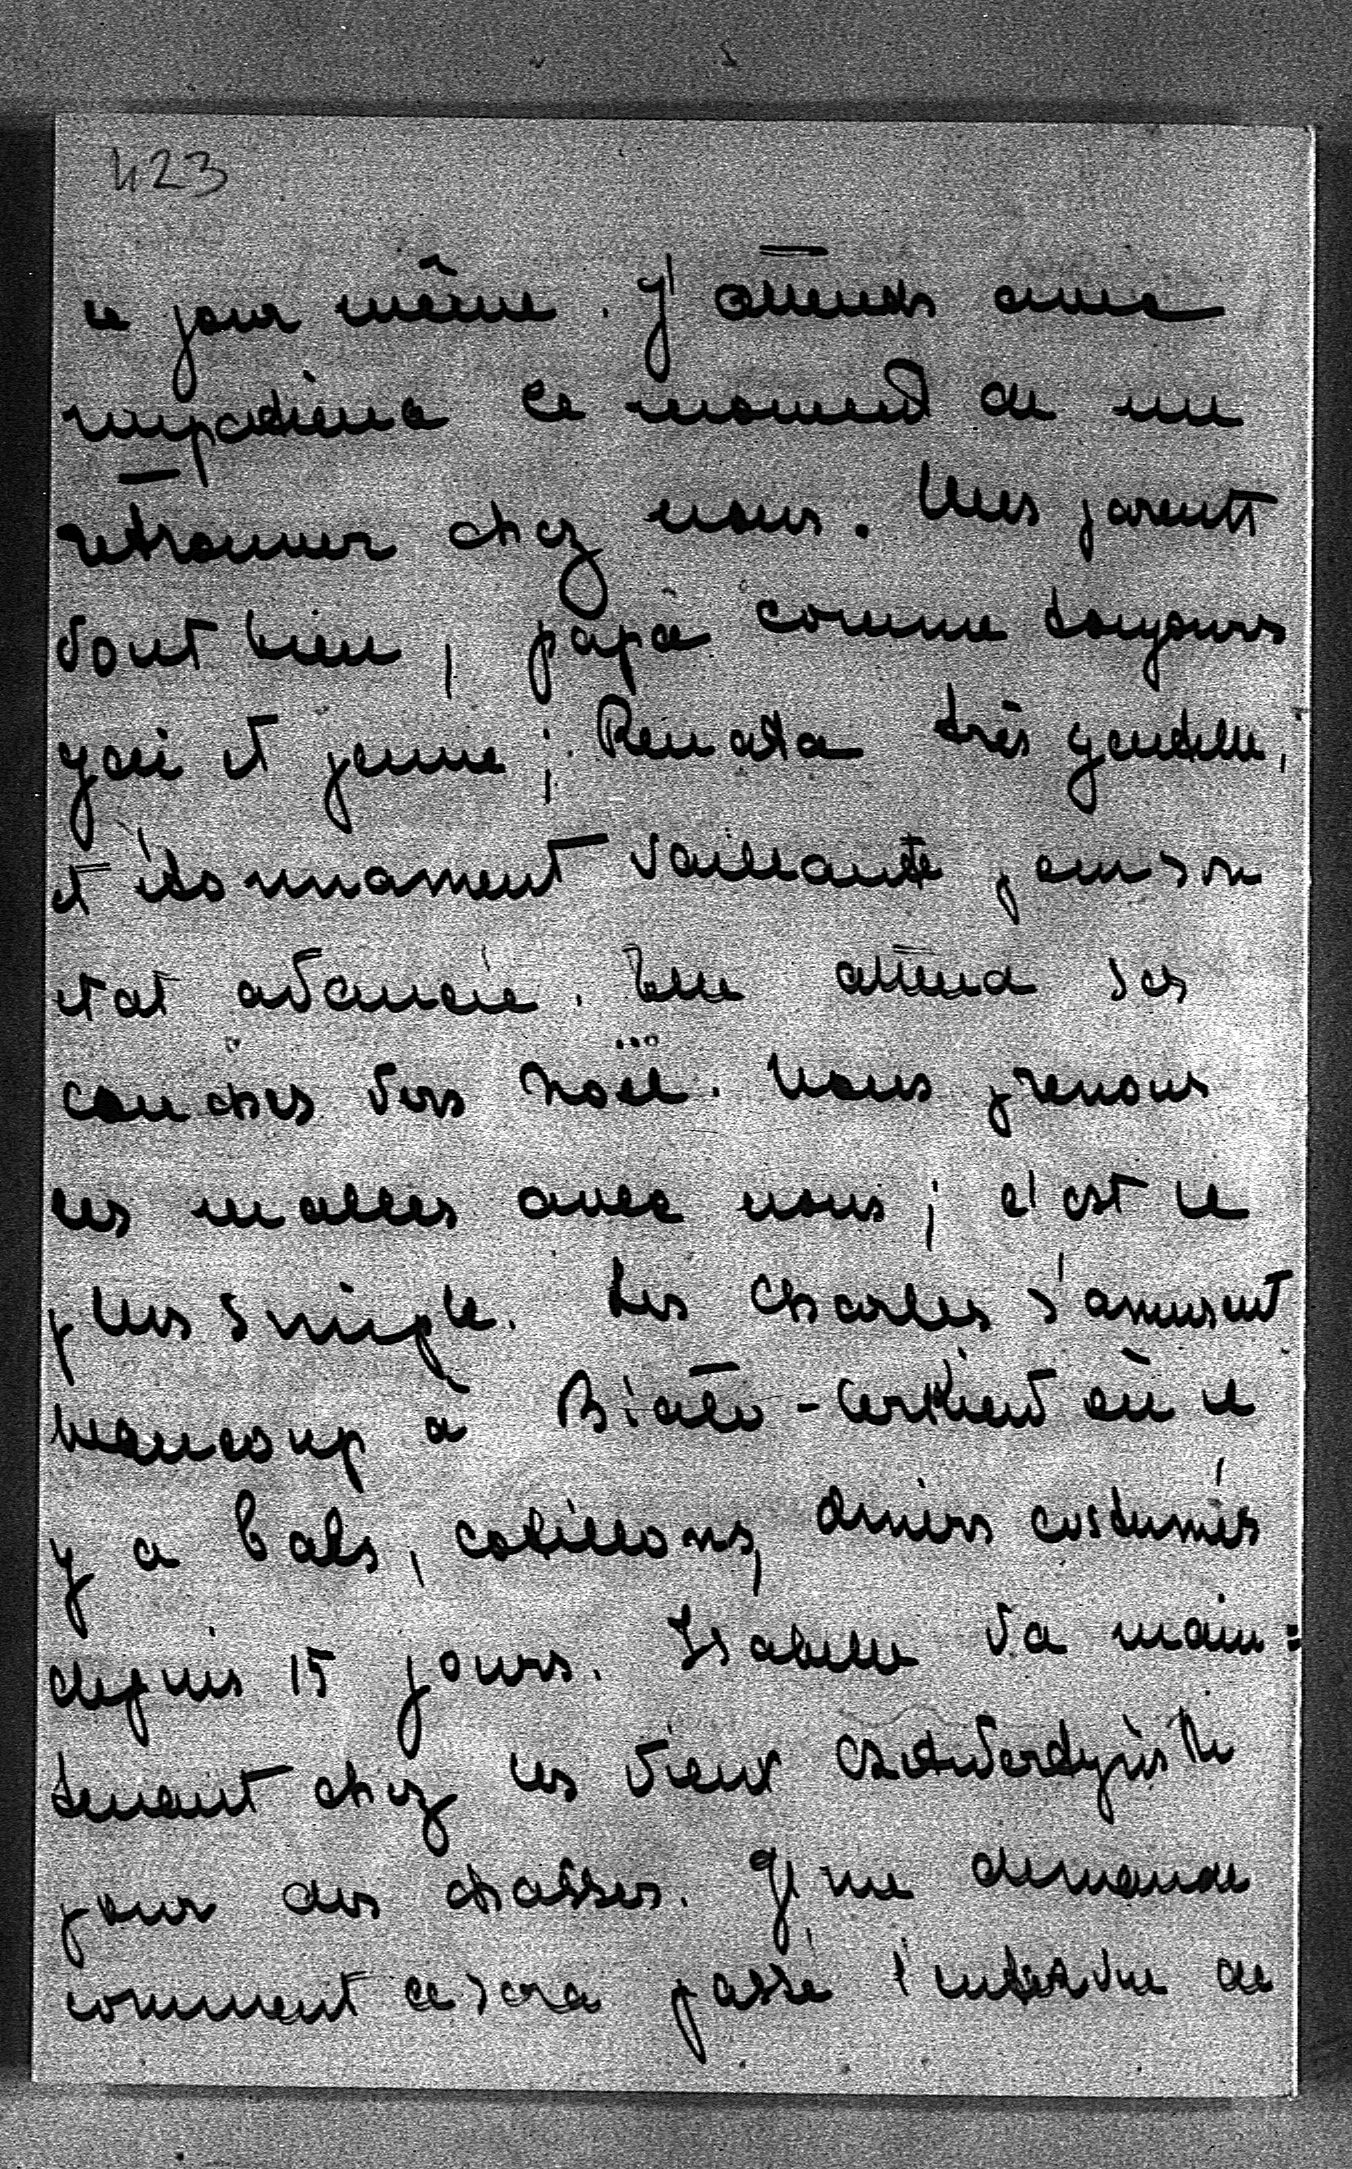 423
le jour même. J'attends avec
impatience le moment de me
retrouver chez nous. Mes parents
vont bien, papa comme toujours
gai et jeune; Renata très gentille,
et étonnament vaillante pour son
état avancé. Elle attend ses
couches vers Noël. Nous prenons
les malles avec nous; c'est le
plus simple. Les Charles s'amusent
beaucoup à Biało-Cerkiew où il
y a bals, cotillons, diners costumés
depuis 15 jours. Isabelle va main=
tenant chez les vieux Czetwertyński
pour des chasses. Je me demande
comment ce sera passé l'entrevue de